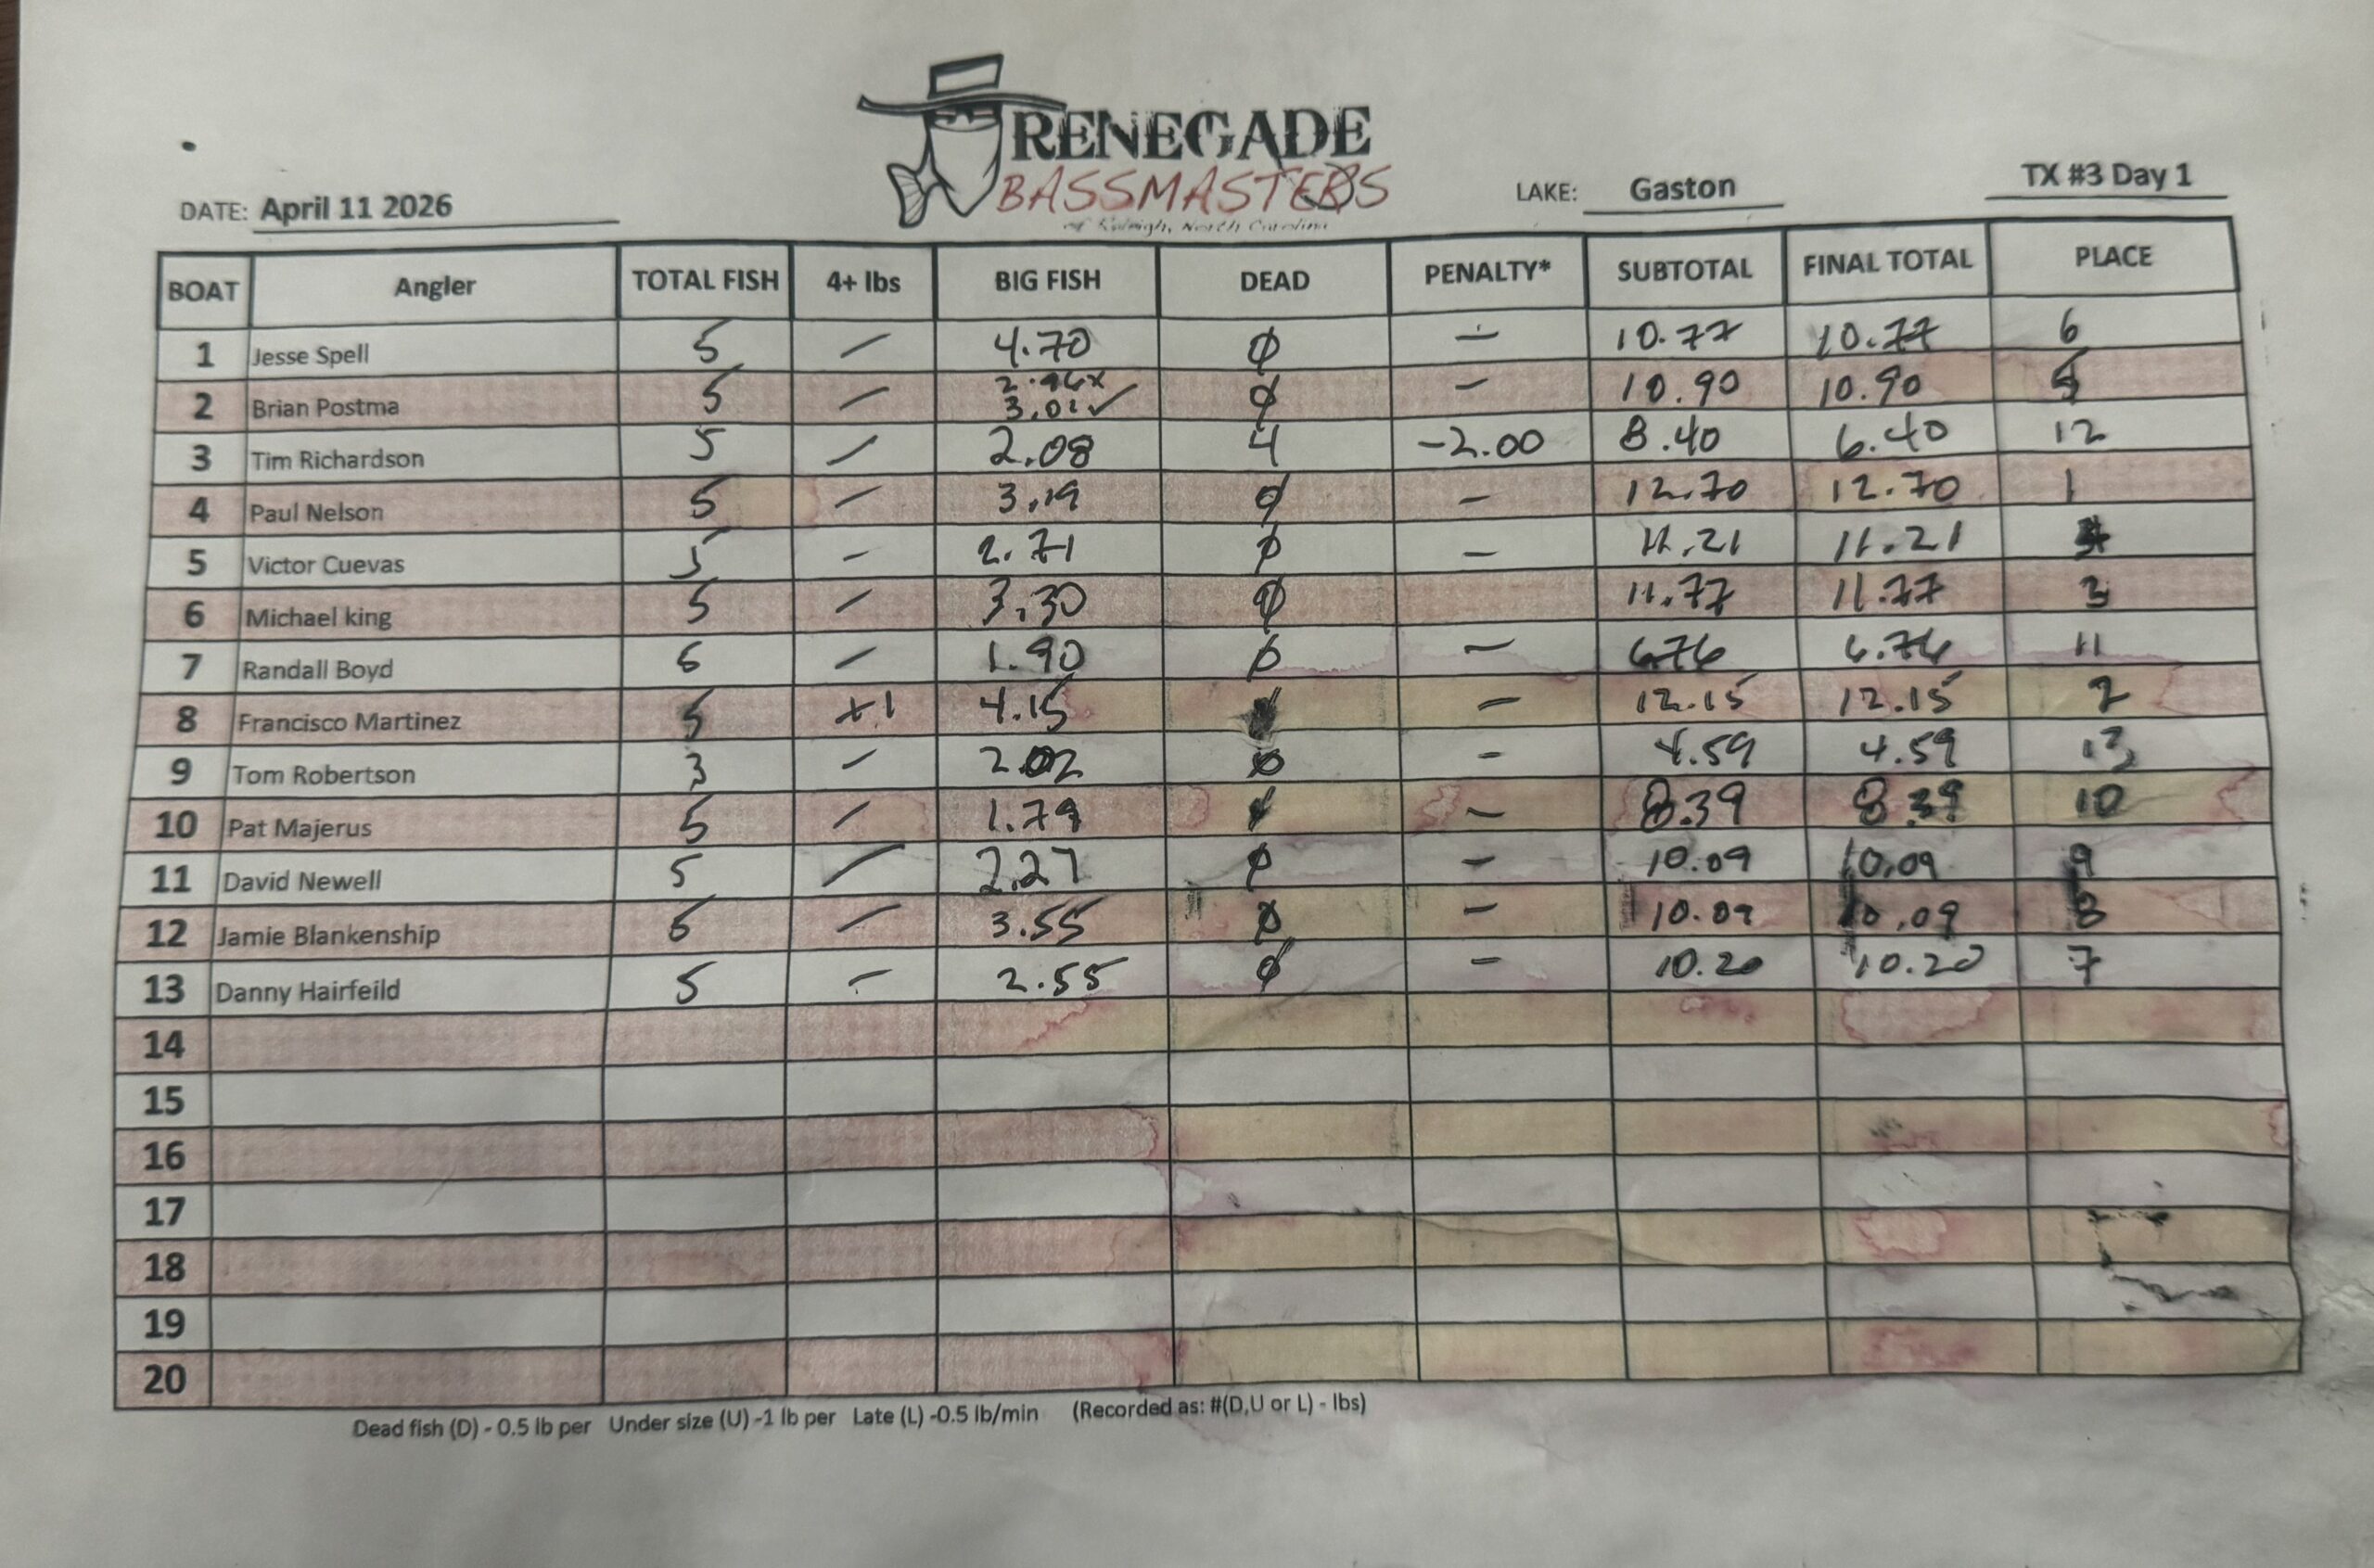 RENEGADE
BASSMASTERS
of Raleigh, North Carolina
DATE: April 11 2026 LAKE: Gaston TX #3 Day 1
BOAT Angler TOTAL FISH 4+ lbs BIG FISH DEAD PENALTY* SUBTOTAL FINAL TOTAL PLACE
1 Jesse Spell 5 — 4.70 0 — 10.77 10.77 6
2 Brian Postma 5 — 2.96x 3.01✓ 0 — 10.90 10.90 5
3 Tim Richardson 5 — 2.08 4 -2.00 8.40 6.40 12
4 Paul Nelson 5 — 3.19 0 — 12.70 12.70 1
5 Victor Cuevas 5 — 2.71 0 — 11.21 11.21
6 Michael king 5 — 3.30 0 11.77 11.77 3
7 Randall Boyd — 1.90 0 — 6.76 6.76 11
8 Francisco Martinez 5 +1 4.15 — 12.15 12.15 2
9 Tom Robertson 3 — 2.02 0 — 4.59 4.59 13
10 Pat Majerus 5 — 1.79 — 8.39 8.39 10
11 David Newell 5 — 2.27 0 — 10.09 10.09 9
12 Jamie Blankenship — 3.55 0 — 10.09 10.09 8
13 Danny Hairfeild 5 — 2.55 0 — 10.20 10.20 7
14
15
16
17
18
19
20
Dead fish (D) - 0.5 lb per Under size (U) -1 lb per Late (L) -0.5 lb/min (Recorded as: #(D,U or L) - lbs)